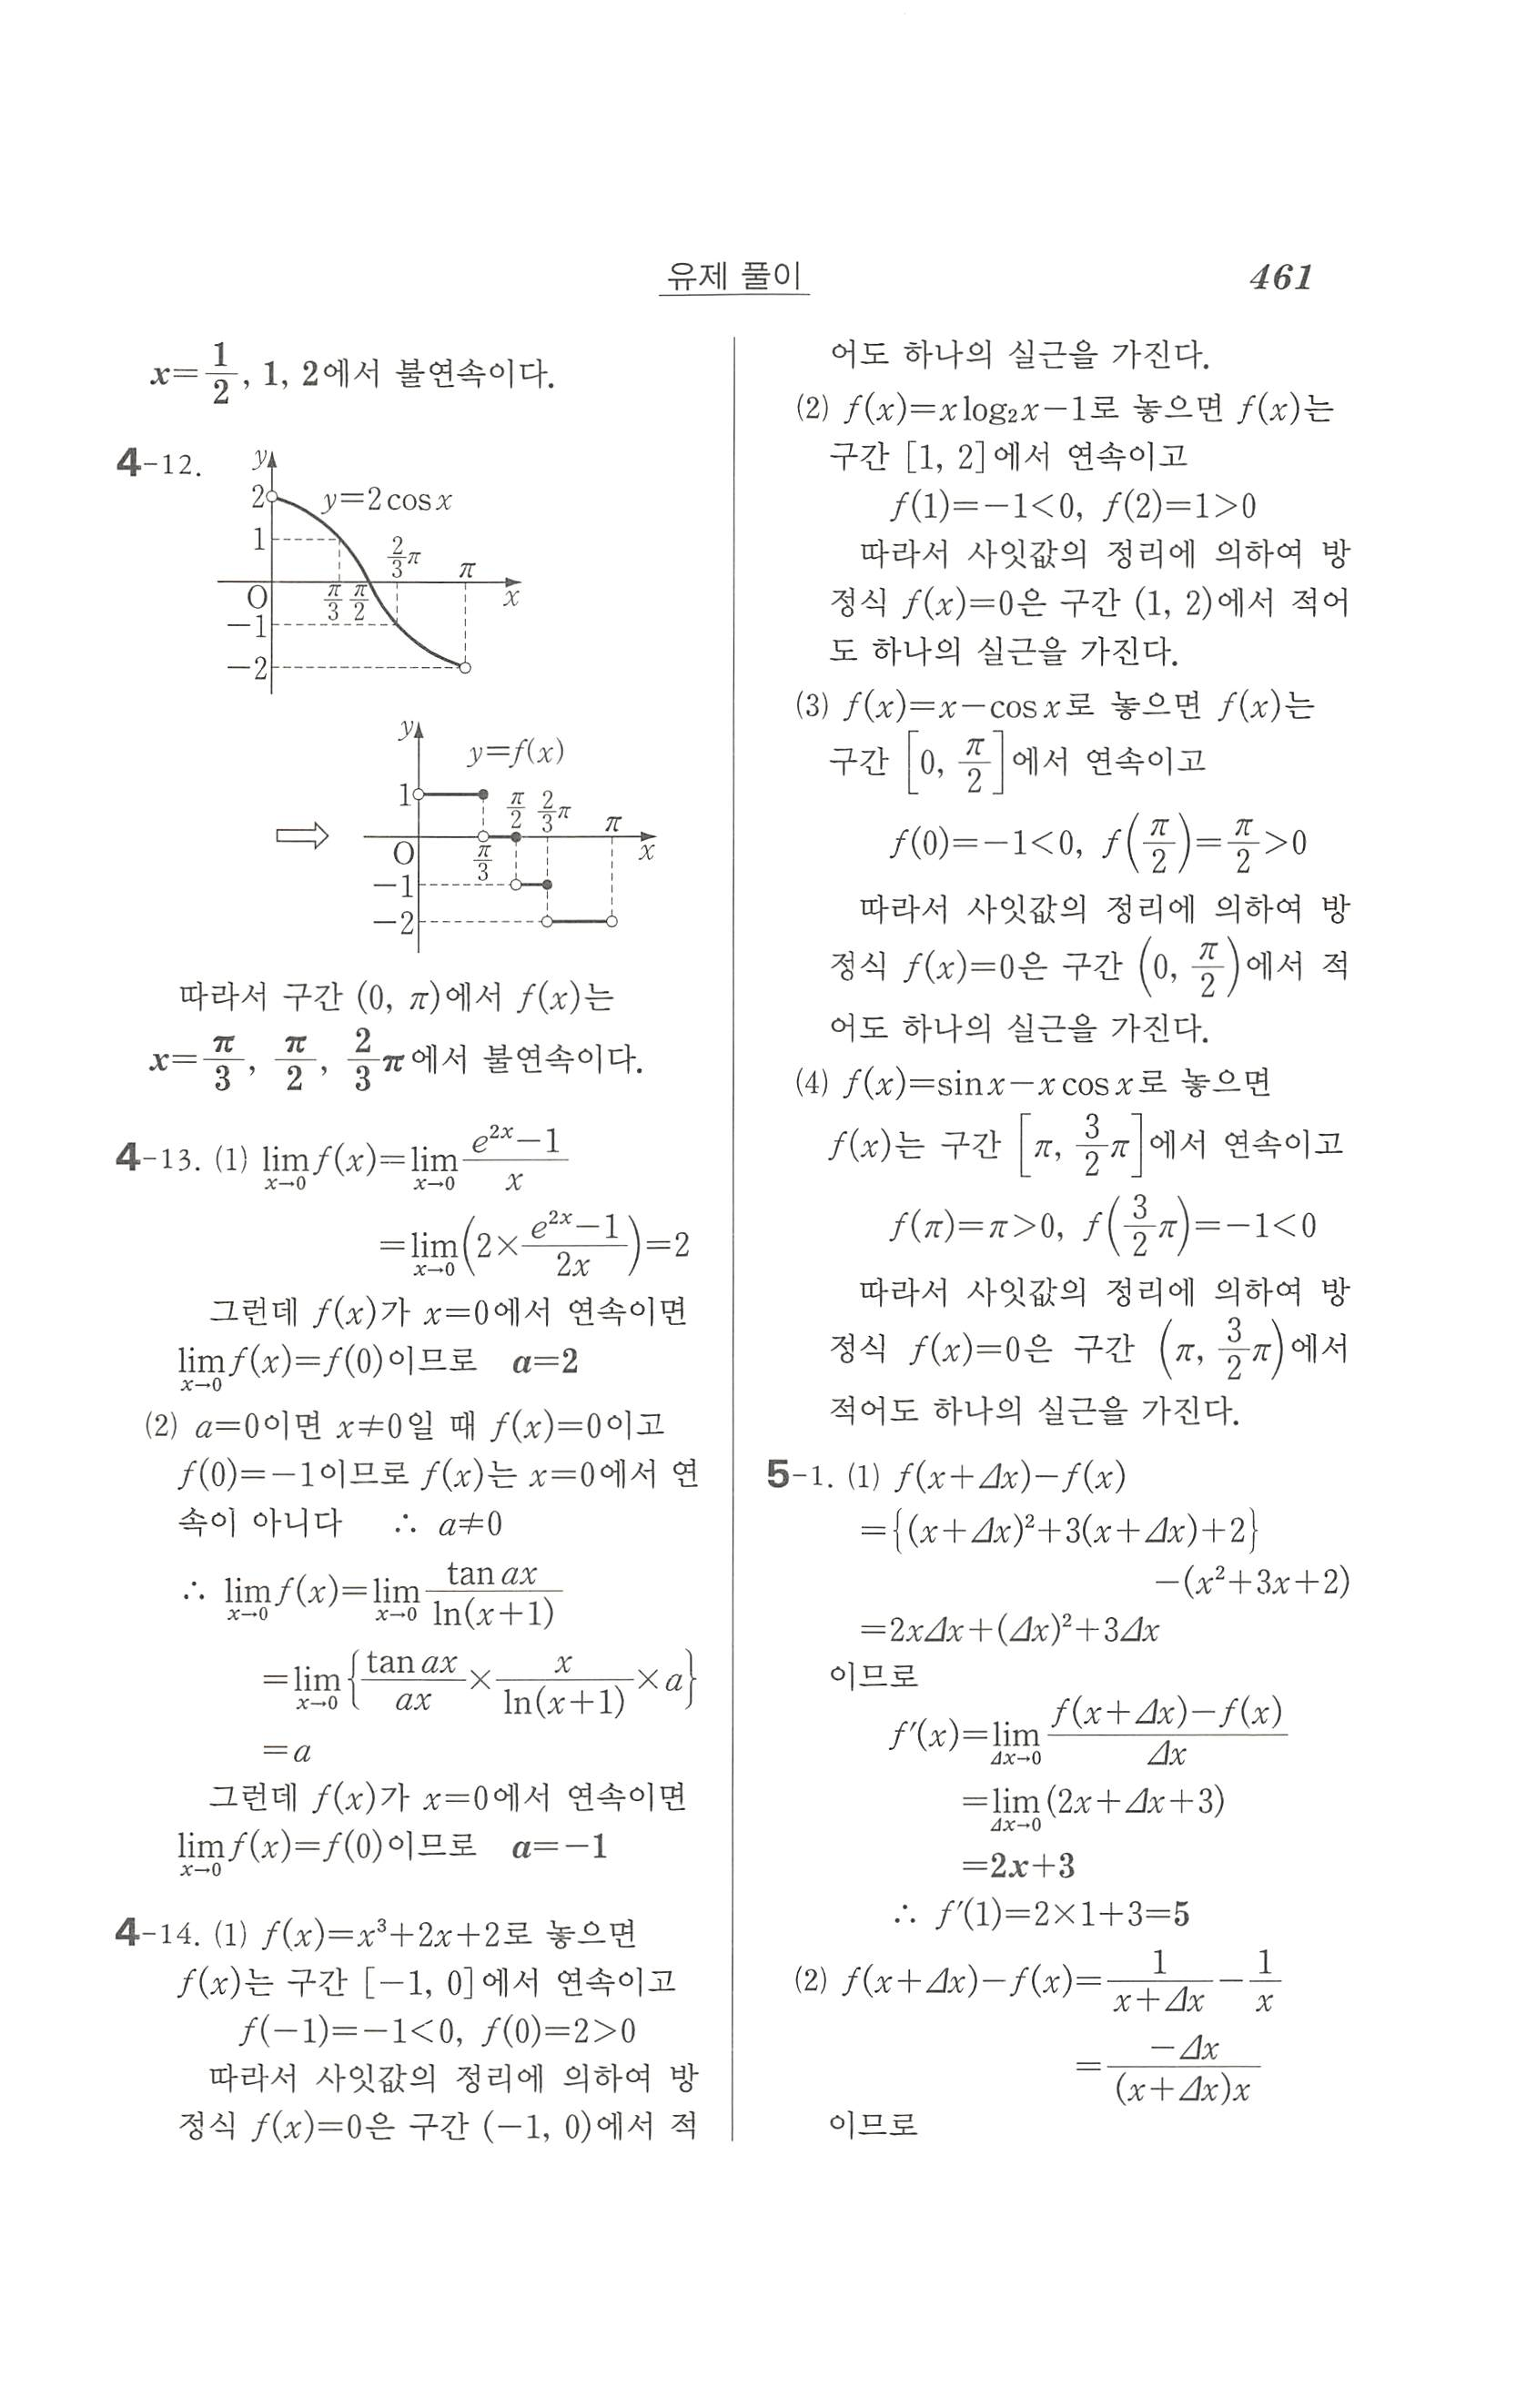 유제 풀이 461
x=1/2, 1, 2에서 불연속이다.
4-12.
y
2
y=2cosx
1
2/3π
π
O
π/3 π/2
x
-1
-2
y
y=f(x)
1
π/2 2/3π
π
⇨
O
π/3
x
-1
-2
따라서 구간 (0, π)에서 f(x)는
x=π/3, π/2, 2/3π에서 불연속이다.
4-13. (1) lim_{x→0} f(x)=lim_{x→0} (e^{2x}-1)/x
=lim_{x→0}(2×(e^{2x}-1)/2x)=2
그런데 f(x)가 x=0에서 연속이면
lim_{x→0} f(x)=f(0)이므로 a=2
(2) a=0이면 x≠0일 때 f(x)=0이고
f(0)=-1이므로 f(x)는 x=0에서 연
속이 아니다 ∴ a≠0
∴ lim_{x→0} f(x)=lim_{x→0} tan ax/ln(x+1)
=lim_{x→0}{tan ax/ax × x/ln(x+1) ×a}
=a
그런데 f(x)가 x=0에서 연속이면
lim_{x→0} f(x)=f(0)이므로 a=-1
4-14. (1) f(x)=x³+2x+2로 놓으면
f(x)는 구간 [-1, 0]에서 연속이고
f(-1)=-1<0, f(0)=2>0
따라서 사잇값의 정리에 의하여 방
정식 f(x)=0은 구간 (-1, 0)에서 적
어도 하나의 실근을 가진다.
(2) f(x)=xlog₂x-1로 놓으면 f(x)는
구간 [1, 2]에서 연속이고
f(1)=-1<0, f(2)=1>0
따라서 사잇값의 정리에 의하여 방
정식 f(x)=0은 구간 (1, 2)에서 적어
도 하나의 실근을 가진다.
(3) f(x)=x-cosx로 놓으면 f(x)는
구간 [0, π/2]에서 연속이고
f(0)=-1<0, f(π/2)=π/2>0
따라서 사잇값의 정리에 의하여 방
정식 f(x)=0은 구간 (0, π/2)에서 적
어도 하나의 실근을 가진다.
(4) f(x)=sinx-xcosx로 놓으면
f(x)는 구간 [π, 3/2π]에서 연속이고
f(π)=π>0, f(3/2π)=-1<0
따라서 사잇값의 정리에 의하여 방
정식 f(x)=0은 구간 (π, 3/2π)에서
적어도 하나의 실근을 가진다.
5-1. (1) f(x+Δx)-f(x)
={(x+Δx)²+3(x+Δx)+2}
-(x²+3x+2)
=2xΔx+(Δx)²+3Δx
이므로
f′(x)=lim_{Δx→0} (f(x+Δx)-f(x))/Δx
=lim_{Δx→0}(2x+Δx+3)
=2x+3
∴ f′(1)=2×1+3=5
(2) f(x+Δx)-f(x)=1/(x+Δx)-1/x
=-Δx/((x+Δx)x)
이므로